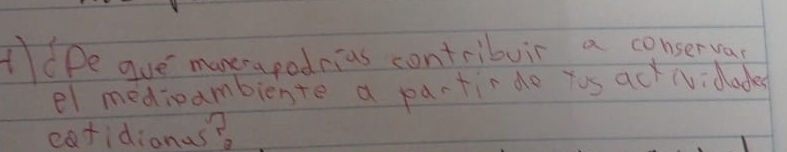 1) ¿De qué manera podrías contribuir a conservar
el medioambiente a partir de tus actividades
cotidianas?